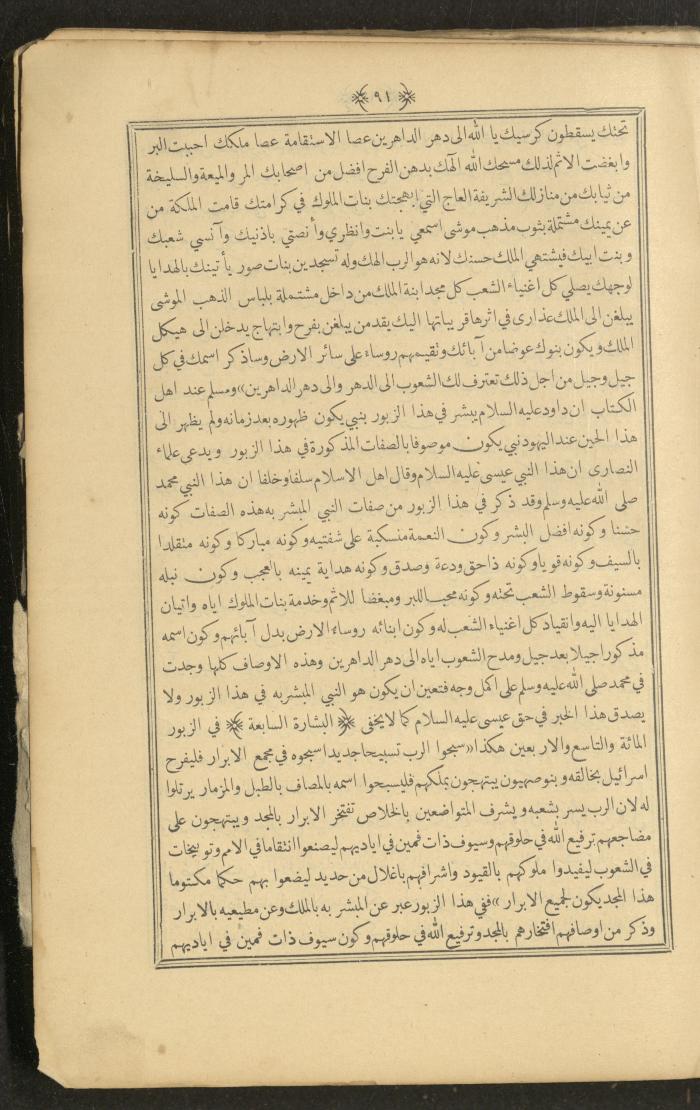 ٩١
تحتك يسقطون كرسيك يا الله الى دهر الداهرين عصا الاستقامة عصا ملكك احببت البر
وابغضت الاثم لذلك مسحك الله الٓهك بدهن الفرح افضل من اصحابك المر والميعة والسليخة
من ثيابك من منازلك الشريفة العاج التي ابهجتك بنات الملوك في كرامتك قامت الملكة من
عن يمينك مشتملة بثوب مذهب موشى اسمعي يا بنت وانظري وأنصتي باذنيك وآنسي شعبك
وبنت ابيك فيشتهي الملك حسنك لانه هو الرب الهك وله تسجدين بنات صور يأتينك بالهدايا
لوجهك يصلي كل اغنياء الشعب كل مجد ابنة الملك من داخل مشتملة بلباس الذهب الموشى
يبلغن الى الملك عذارى في اثرها قريباتها اليك يقدمن يبلغن بفرح وابتهاج يدخلن الى هيكل
الملك ويكون بنوك عوضا من آبائك وتقيمهم روساء على سائر الارض وساذكر اسمك في كل
جيل وجيل من اجل ذلك تعترف لك الشعوب الى الدهر والى دهر الداهرين» ومسلم عند اهل
الكتاب ان داود عليه السلام يبشر في هذا الزبور بنبي يكون ظهوره بعد زمانه ولم يظهر الى
هذا الحين عند اليهود نبي يكون موصوفا بالصفات المذكورة في هذا الزبور ويدعى علماء
النصارى ان هذا النبي عيسى عليه السلام وقال اهل الاسلام سلفا وخلفا ان هذا النبي محمد
صلى الله عليه وسلم وقد ذكر في هذا الزبور من صفات النبي المبشر به هذه الصفات كونه
حسنا وكونه افضل البشر وكون النعمة منسكبة على شفتيه وكونه مباركا وكونه متقلدا
بالسيف وكونه قويا وكونه ذا حق ودعة وصدق وكونه هداية يمينه بالعجب وكون نبله
مسنونة وسقوط الشعب تحته وكونه محبا للبر ومبغضا للاثم وخدمة بنات الملوك اياه واتيان
الهدايا اليه وانقياد كل اغنياء الشعب له وكون ابنائه روساء الارض بدل آبائهم وكون اسمه
مذكورا جيلا بعد جيل ومدح الشعوب اياه الى دهر الداهرين وهذه الاوصاف كلها وجدت
في محمد صلى الله عليه وسلم على اكمل وجه فتعين ان يكون هو النبي المبشر به في هذا الزبور ولا
يصدق هذا الخبر في حق عيسى عليه السلام كما لا يخفى ﴿ البشارة السابعة ﴾ في الزبور
المائة والتاسع والاربعين هكذا «سبحوا الرب تسبيحا جديدا سبحوه في مجمع الابرار فليفرح
اسرائيل بخالقه وبنو صهيون يبتهجون بملكهم فليسبحوا اسمه بالمصاف بالطبل والمزمار يرتلوا
له لان الرب يسر بشعبه ويشرف المتواضعين بالخلاص تفتخر الابرار بالمجد ويبتهجون على
مضاجعهم ترفيع الله في حلوقهم وسيوف ذات فمين في اياديهم ليصنعوا انتقاما في الامم وتوبيخات
في الشعوب ليفيدوا ملوكهم بالقيود واشرافهم باغلال من حديد ليضعوا بهم حكما مكتوما
هذا المجد يكون لجميع الابرار» ففي هذا الزبور عبر عن المبشر به بالملك وعن مطيعيه بالابرار
وذكر من اوصافهم افتخارهم بالمجد وترفيع الله في حلوقهم وكون سيوف ذات فمين في اياديهم